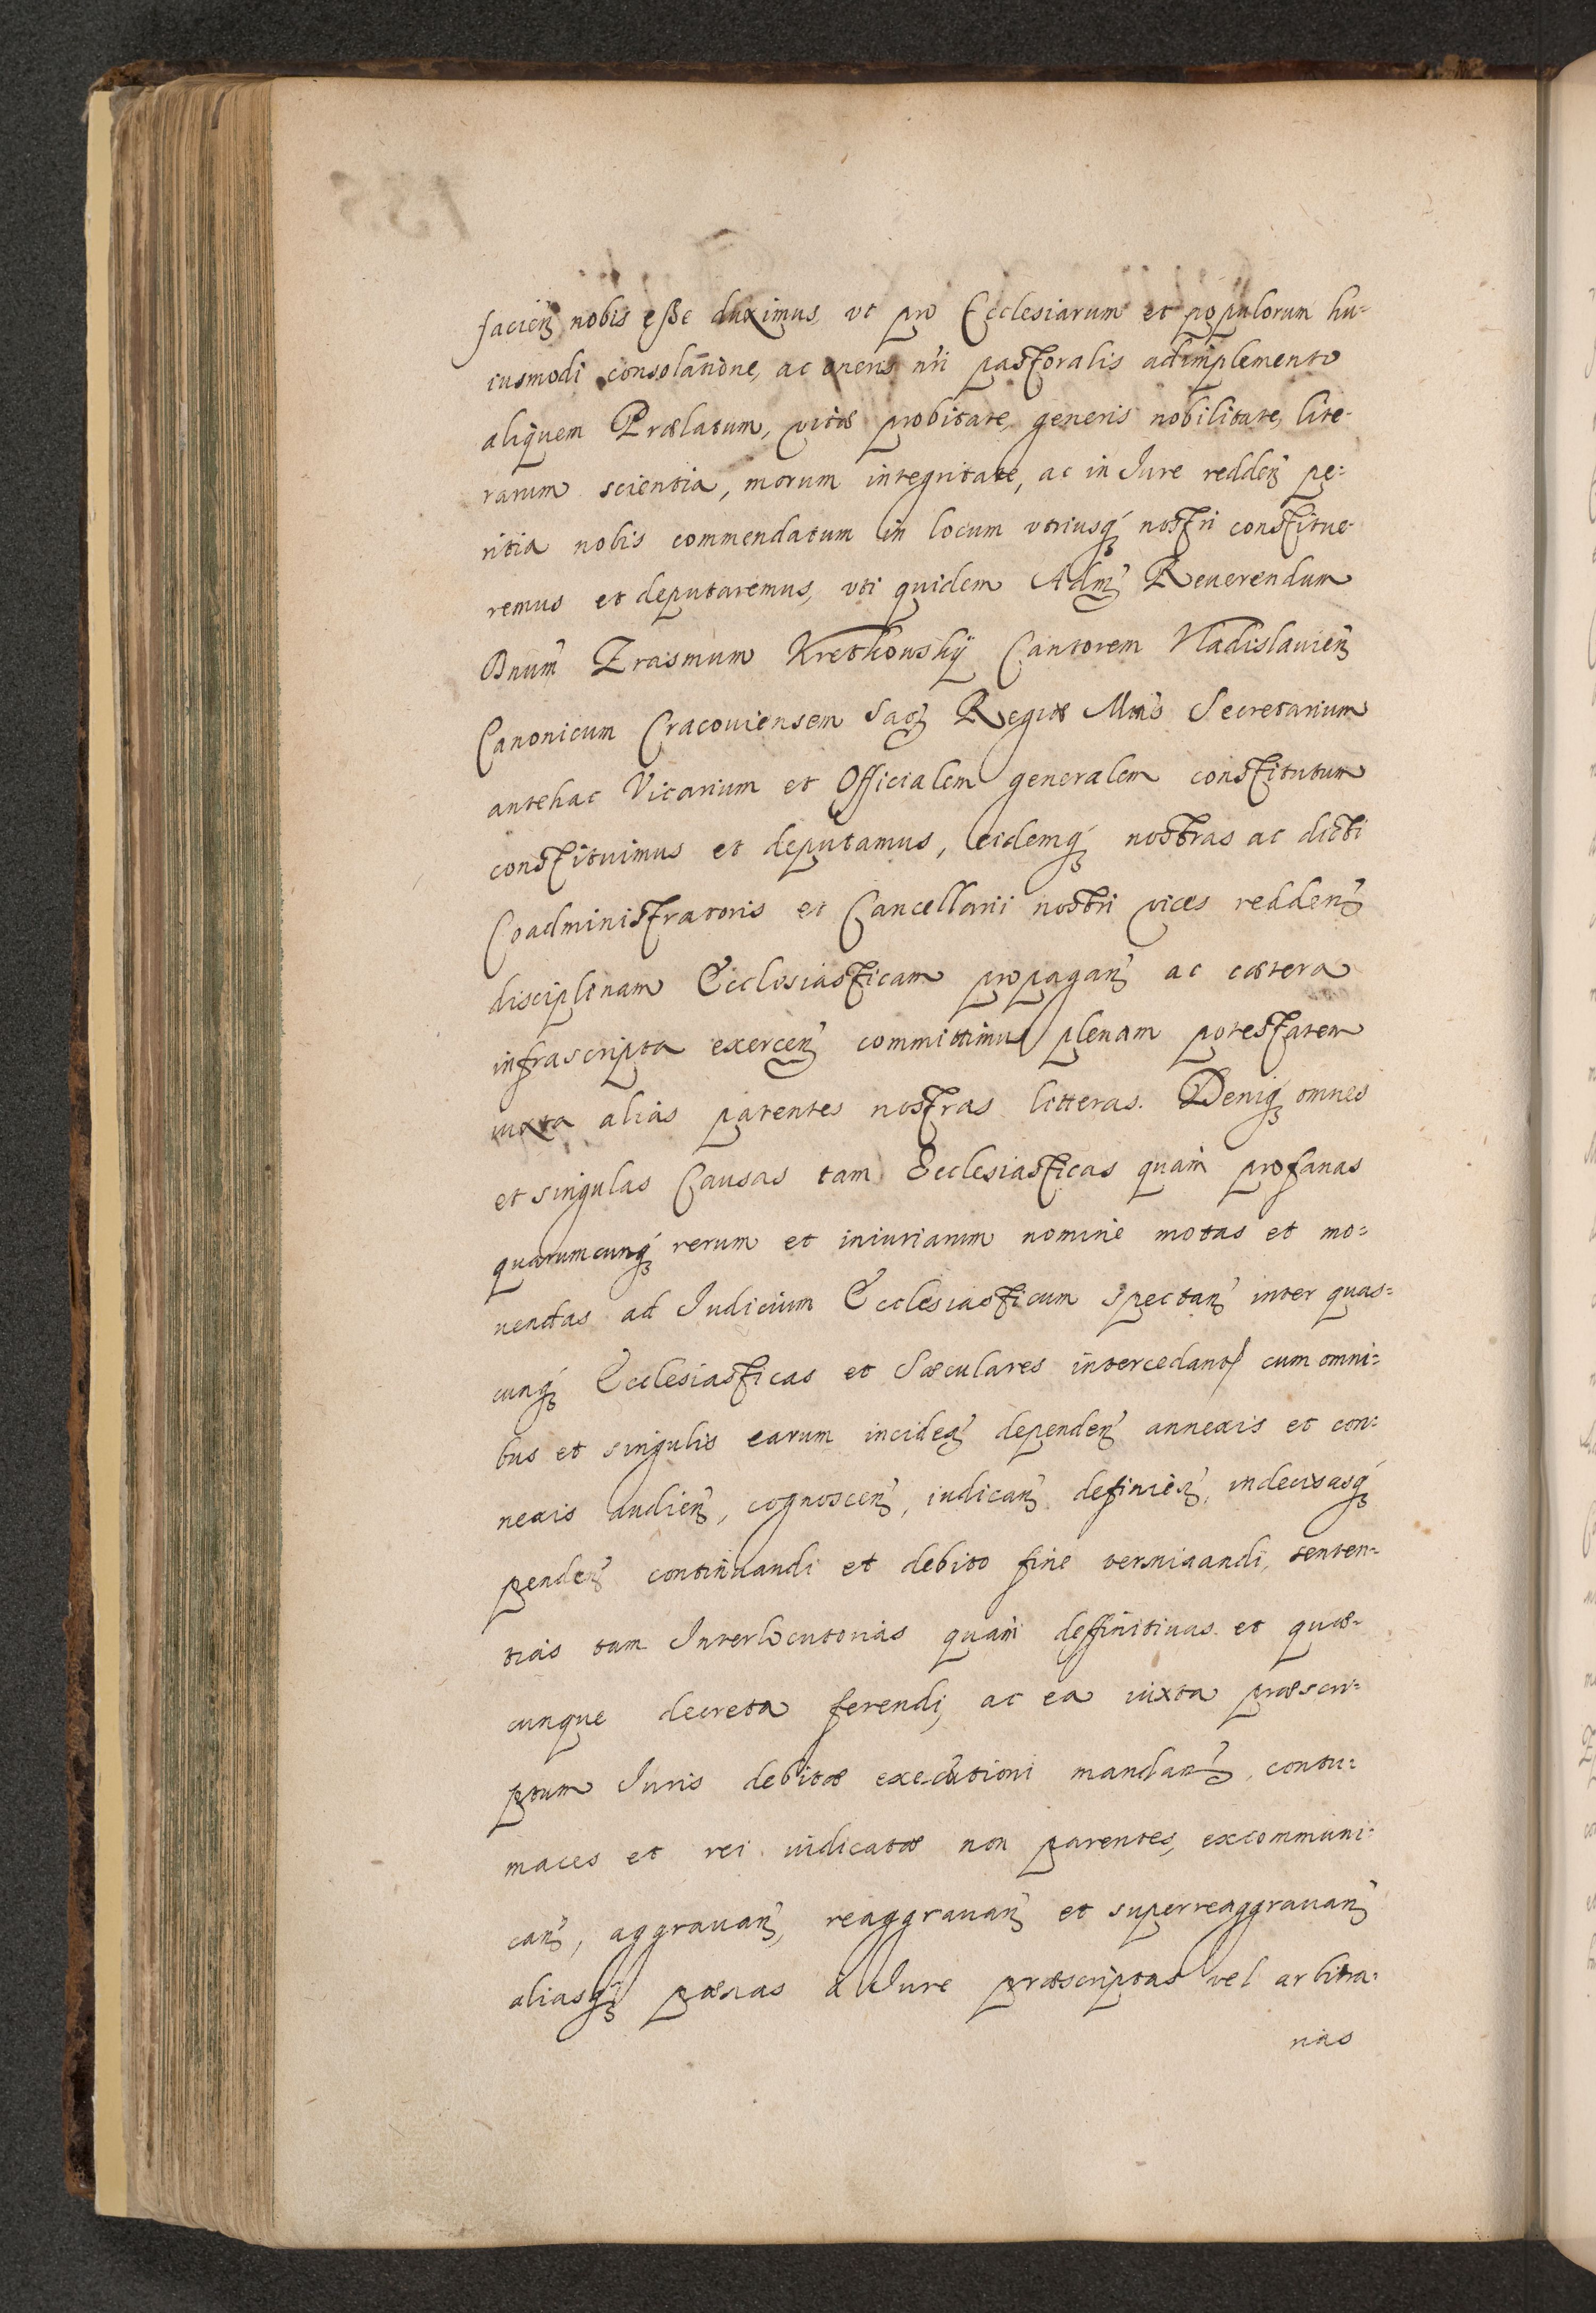 facien̄ nobis eße duximus, vt pro Ecclesiarum et populorum hu-
iusmodi consolatione, ac oneris nr̄i pastoralis adimplemento
aliquem Prælatum, vitæ probitate, generis nobilitate, lite-
rarum scientia, morum integritate, ac in Iure redden̄ pe-
ritia nobis commendatum in locum vtriusq́ nostri constitue-
remus et deputaremus, vti quidem Adm̄ Reuerendum
Dnum̄ Erasmum Kretkowskÿ Cantorem Vladislauien̄
Canonicum Cracouiensem Sac̄ Regiæ Mtis Secretarium
antehac Vicarium et Officialem generalem constitutum
constituimus et deputamus, eidemq́ nostras ac dicti
Coadministratoris et Cancellarii nostri vices redden̄
disciplinam Ecclesiasticam propagan̄ ac cætera
infrascripta exercen̄ committimus plenam potestatem
iuxta alias patentes nostras litteras. Deniq́ omnes
et singulas Causas tam Ecclesiasticas quàm profanas
quarumcunq́ rerum et iniuriarum nomine motas et mo-
uendas ad Iudicium Ecclesiasticum spectan̄ inter quas-
cunq́ Ecclesiasticas et Sæculares intercedant, cum omni-
bus et singulis earum inciden̄ dependen̄ annexis et con-
nexis audien̄, cognoscen̄, iudican̄ definien̄, indecisasq́
penden̄ continuandi et debito fine terminandi, senten-
tias tam Interlocutorias quàm deffinitiuas et quæ-
cunque decreta ferendi, ac ea iuxta præscri-
ptum Iuris debitæ executioni mandan̄, contu-
maces et rei iudicatæ non parentes, excommuni-
can̄, aggrauan̄, reaggrauan̄ et superreaggrauan̄
aliasq́ pænas à Iure præscriptas vel arbitra-
rias